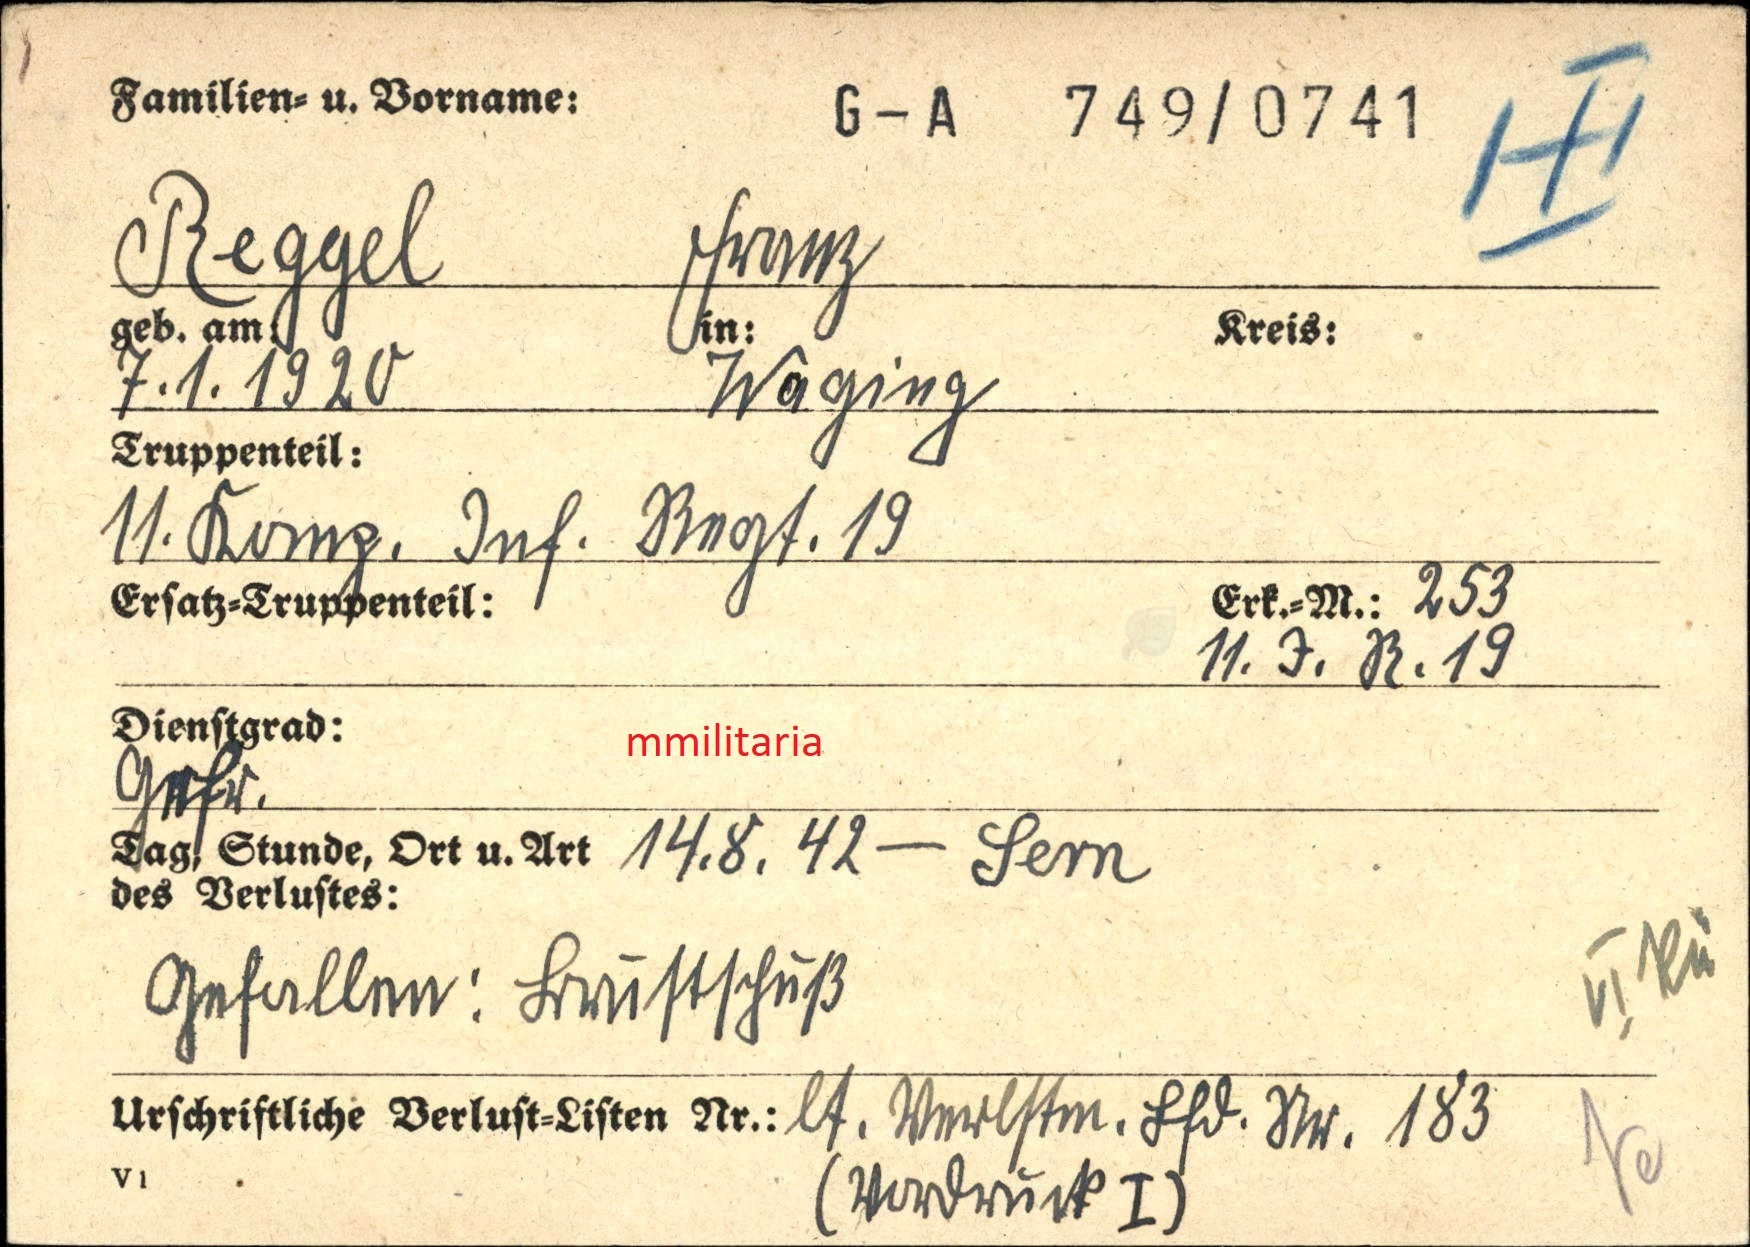 Familien- u. Vorname: G-A 749/0741
Reggel Franz
geb. am: in: Kreis:
7.1.1920 Waging
Truppenteil:
11. Komp. Inf. Regt. 19
Ersatz-Truppenteil: Erk.-M.: 253
11. I. R. 19
Dienstgrad:
mmilitaria
Gefr.
Tag, Stunde, Ort u. Art 14.8.42 — Sern
des Verlustes:
Gefallen: Brustschuß
VI
Urschriftliche Verlust-Listen Nr.: lt. Verlstm. Lfd. Nr. 183
V1 (Vordruck I)